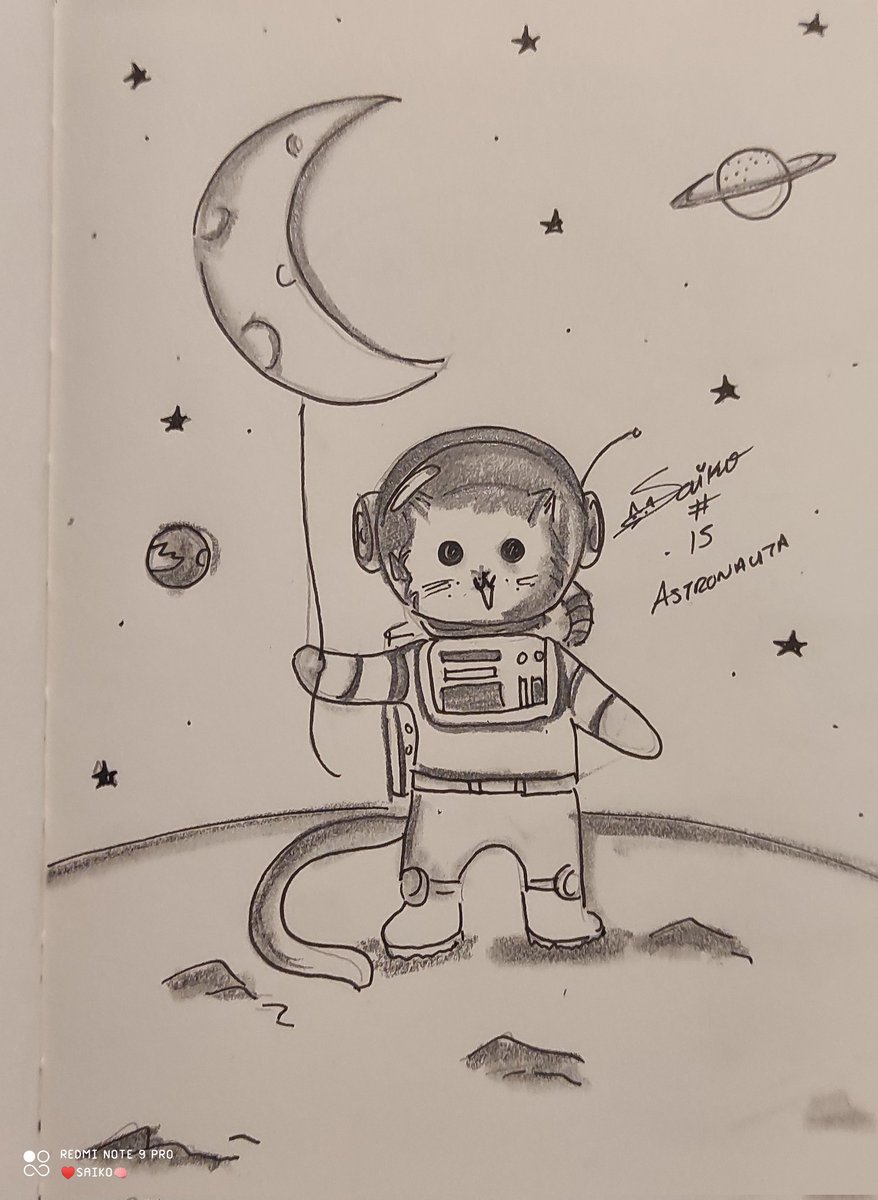 Saiko
#
15
ASTRONAUTA
REDMI NOTE 9 PRO
❤️SAIKO🧠